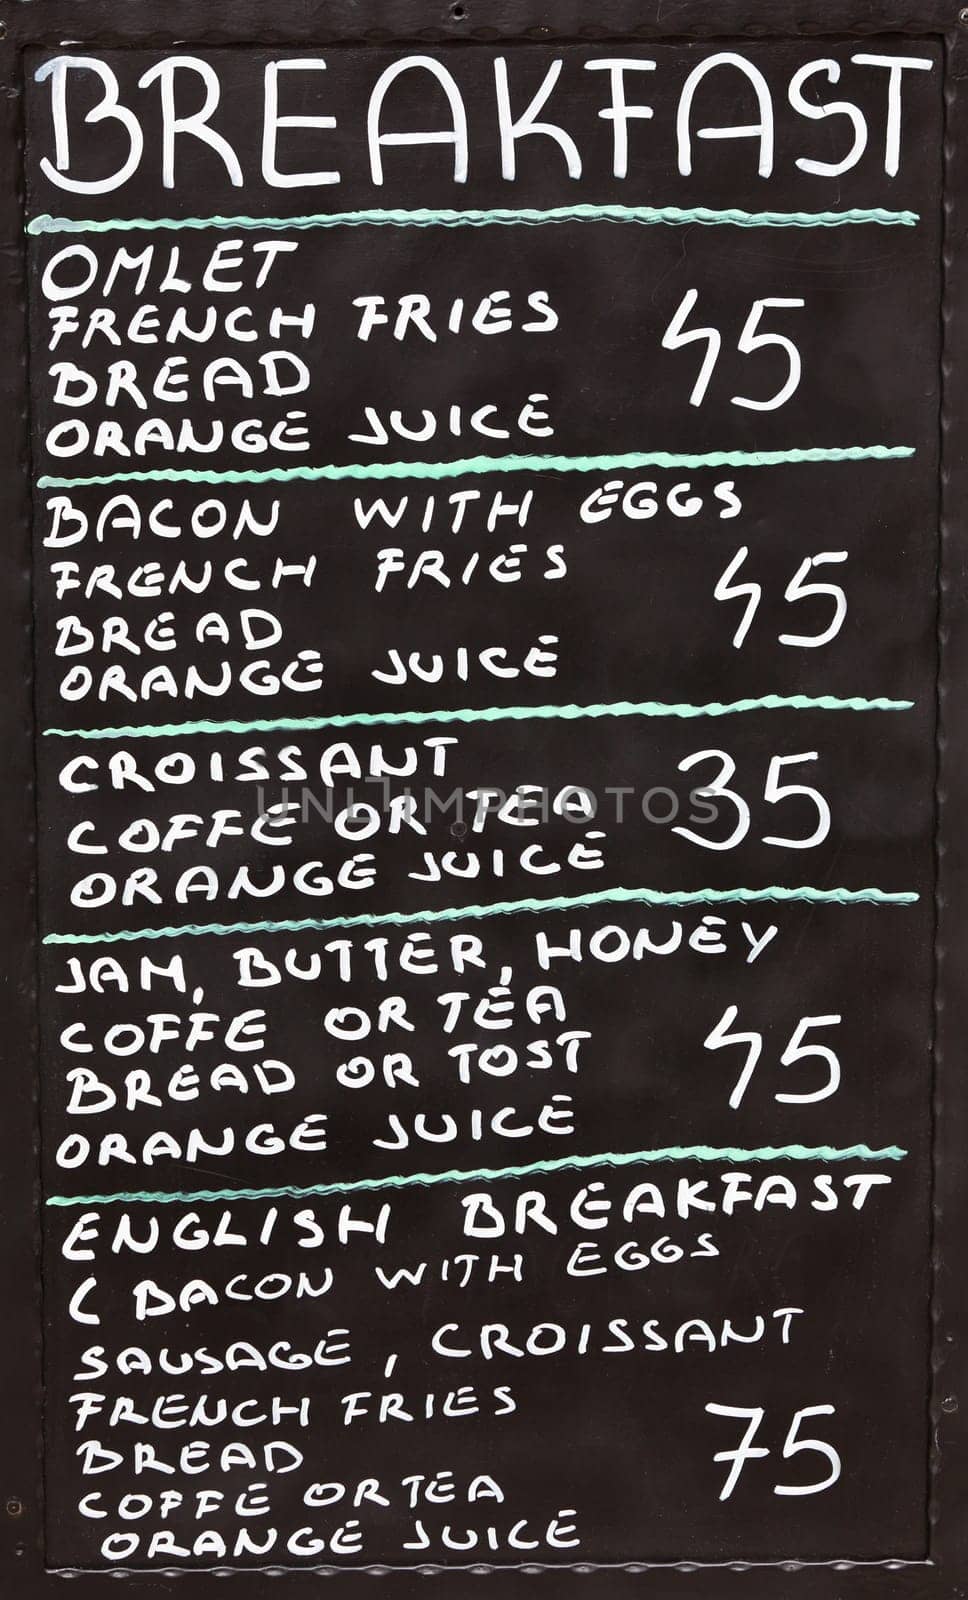 BREAKFAST
OMLET
FRENCH FRIES
BREAD
ORANGE JUICE
45
BACON WITH EGGS
FRENCH FRIES
BREAD
ORANGE JUICE
45
CROISSANT
COFFE OR TEA
ORANGE JUICE
35
UNLIMPHOTOS
JAM, BUTTER, HONEY
COFFE OR TEA
BREAD OR TOST
ORANGE JUICE
45
ENGLISH BREAKFAST
( BACON WITH EGGS
SAUSAGE, CROISSANT
FRENCH FRIES
BREAD
COFFE OR TEA
ORANGE JUICE
75